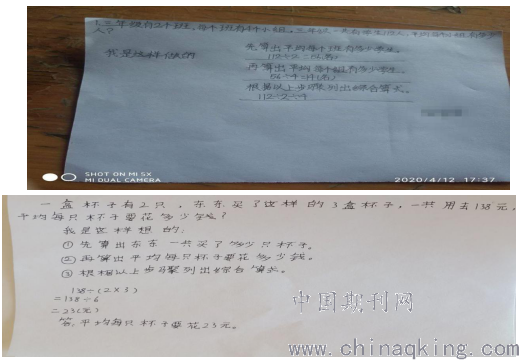 1.三年级有2个班，每个班有4个小组，三年级一共有学生112人，平均每个小组有多少
人？
我是这样做的
先算出平均每个班有多少学生。
112÷2=56(名)
再算出平均每个组有多少学生。
56÷4=14(名)
根据以上步骤列出综合算式。
112÷2÷4
SHOT ON MI 5X
MI DUAL CAMERA
2020/4/12 17:37
一盒杯子有2只，东东买了这样的3盒杯子，一共用去138元，
平均每只杯子要花多少钱？
我是这样想的：
①先算出东东一共买了多少只杯子。
②再算出平均每只杯子要花多少钱。
③根据以上步骤列出综合算式。
138÷(2×3)
=138÷6
=23(元)
答，平均每只杯子要花23元。
中国期刊网
www.chinaqking.com